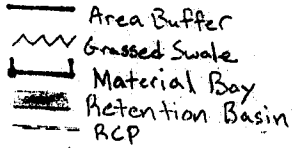 Area Buffer
Grassed Swale
Material Bay
Retention Basin
RCP